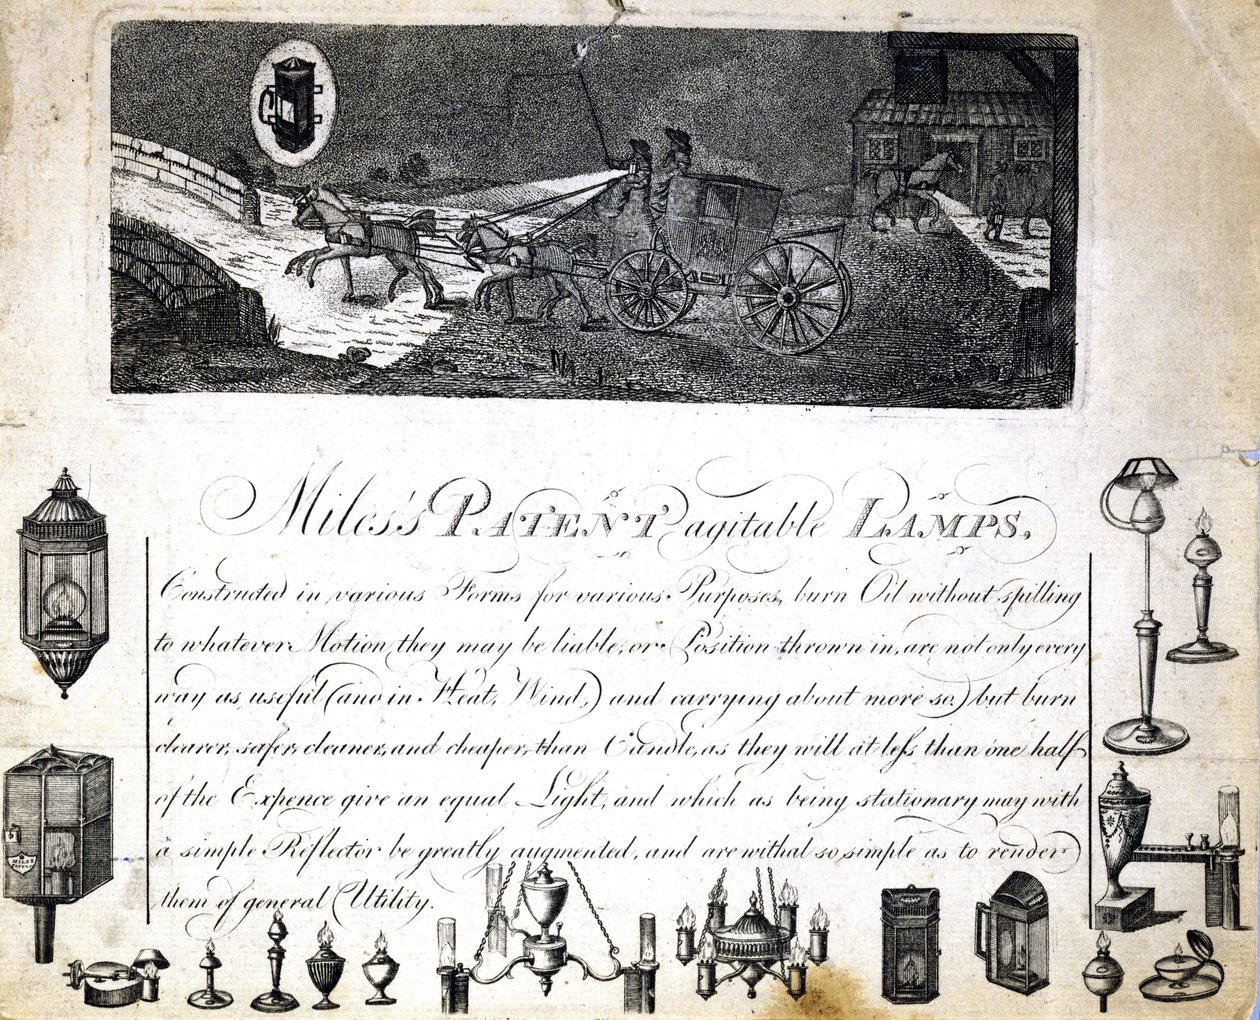 Miles's PATENT agitable LAMPS,
Constructed in various Forms for various Purposes, burn Oil without spilling
to whatever Motion they may be liable, or Position thrown in, are not only every
way as useful (and in Heat, Wind, and carrying about more so) but burn
clearer, safer, cleaner, and cheaper, than Candle, as they will at leſs than one half
of the Expence give an equal Light, and which as being stationary may with
a simple Reflector be greatly augmented, and are withal so simple as to render
them of general Utility.
MILES
PATENT